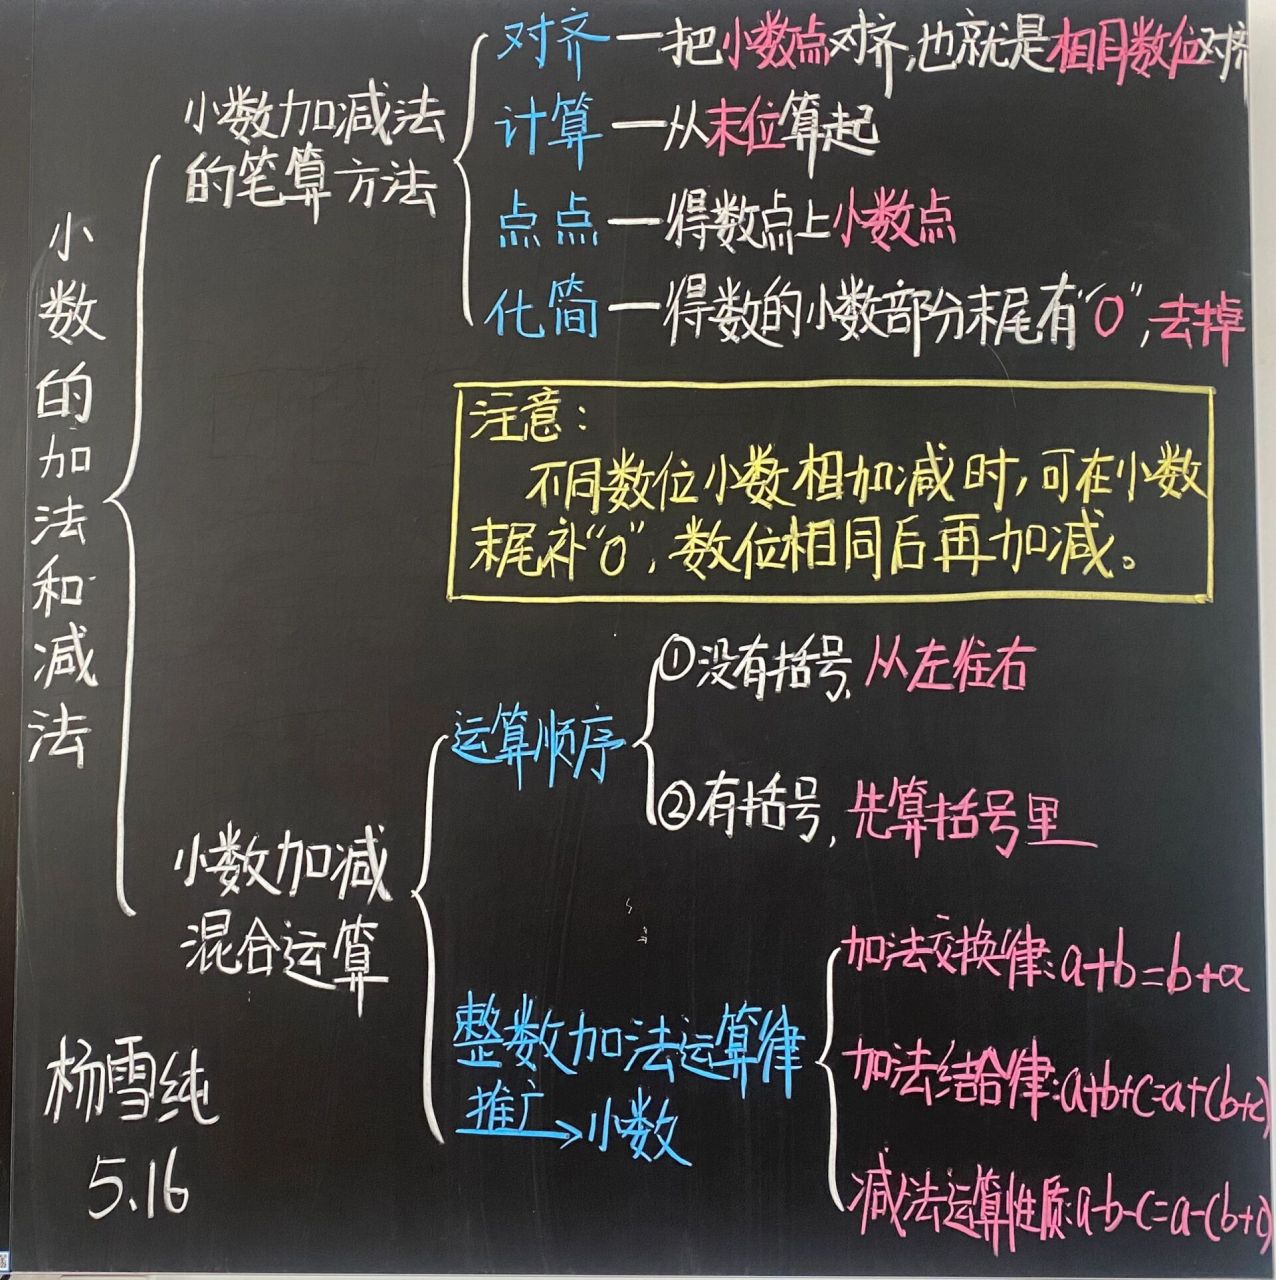 小数的加法和减法
小数加减法
的笔算方法
对齐—把小数点对齐,也就是相同数位对齐
计算—从末位算起
点点—得数点上小数点
化简—得数的小数部分末尾有“0”,去掉
注意:
不同数位小数相加减时,可在小数
末尾补“0”,数位相同后再加减。
小数加减
混合运算
运算顺序
①没有括号,从左往右
②有括号,先算括号里
整数加法运算律
推广→小数
加法交换律:a+b=b+a
加法结合律:a+b+c=a+(b+c)
减法运算性质:a-b-c=a-(b+c)
杨雪纯
5.16